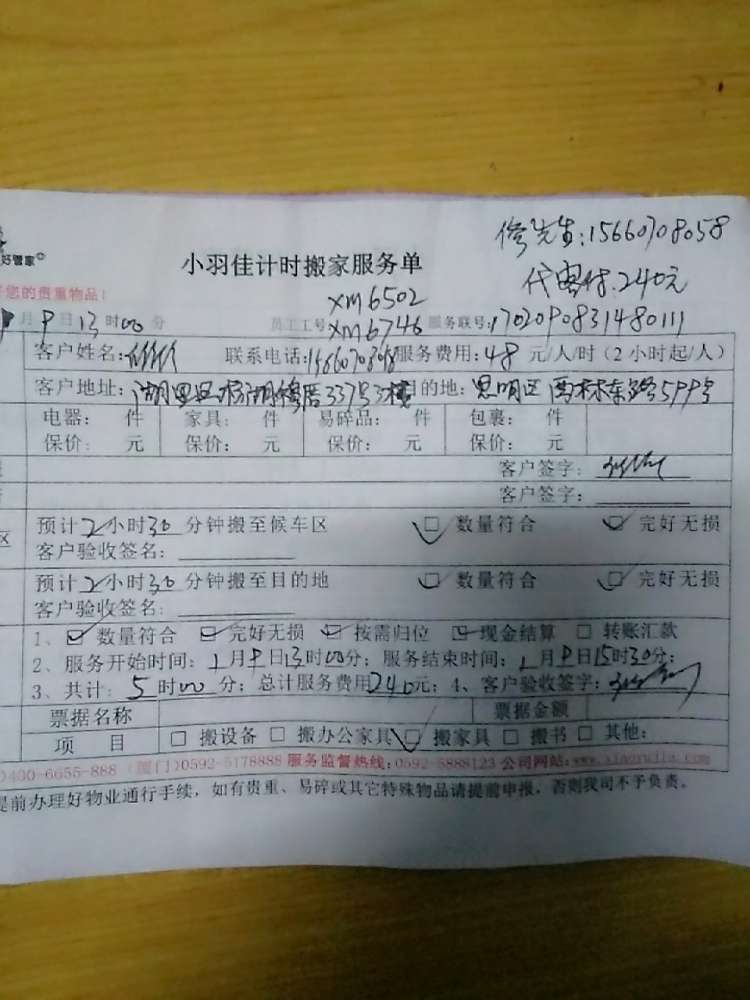 先生:15660708058
好管家
小羽佳计时搬家服务单
代 付.240元
您的贵重物品!
XM6502
月 9 日 13 时 00 分 员工工号 XM6746 服务联号:1702090831480111
客户姓名: 联系电话: 服务费用:48 元/人/时(2小时起/人)
客户地址:湖里区 337号3楼 目的地:思明区 东路599号
电器: 件 家具: 件 易碎品: 件 包裹: 件
保价: 元 保价: 元 保价: 元 保价: 元
客户签字:
客户签字:
预计 2 小时 30 分钟搬至候车区 ☑ 数量符合 ☑ 完好无损
区 客户验收签名:
预计 2 小时 30 分钟搬至目的地 ☑ 数量符合 ☑ 完好无损
客户验收签名:
1、☑ 数量符合 ☑ 完好无损 ☑ 按需归位 ☑ 现金结算 □ 转账汇款
2、服务开始时间: 1 月 9 日 13 时 00 分; 服务结束时间: 1 月 9 日 15 时 30 分;
3、共计: 5 时 00 分; 总计服务费用 240 元; 4、客户验收签字:
票据名称 票据金额
项 目 □ 搬设备 □ 搬办公家具 ☑ 搬家具 □ 搬书 □ 其他:
400-6655-888 (厦门)0592-5178888 服务监督热线:0592-5888123 公司网站:
提前办理好物业通行手续，如有贵重、易碎或其它特殊物品请提前申报，否则我司不予负责。